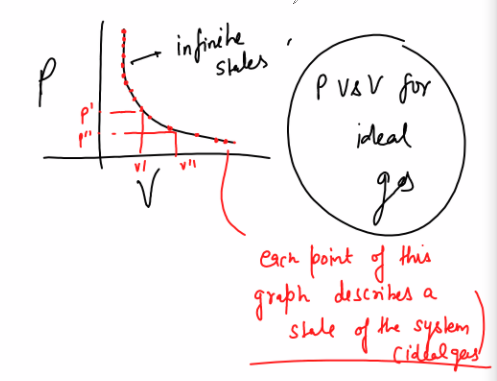 infinite
states
P
P'
P"
V'
V"
V
P vs V for
ideal
gas
each point of this
graph describes a
state of the system
(ideal gas)